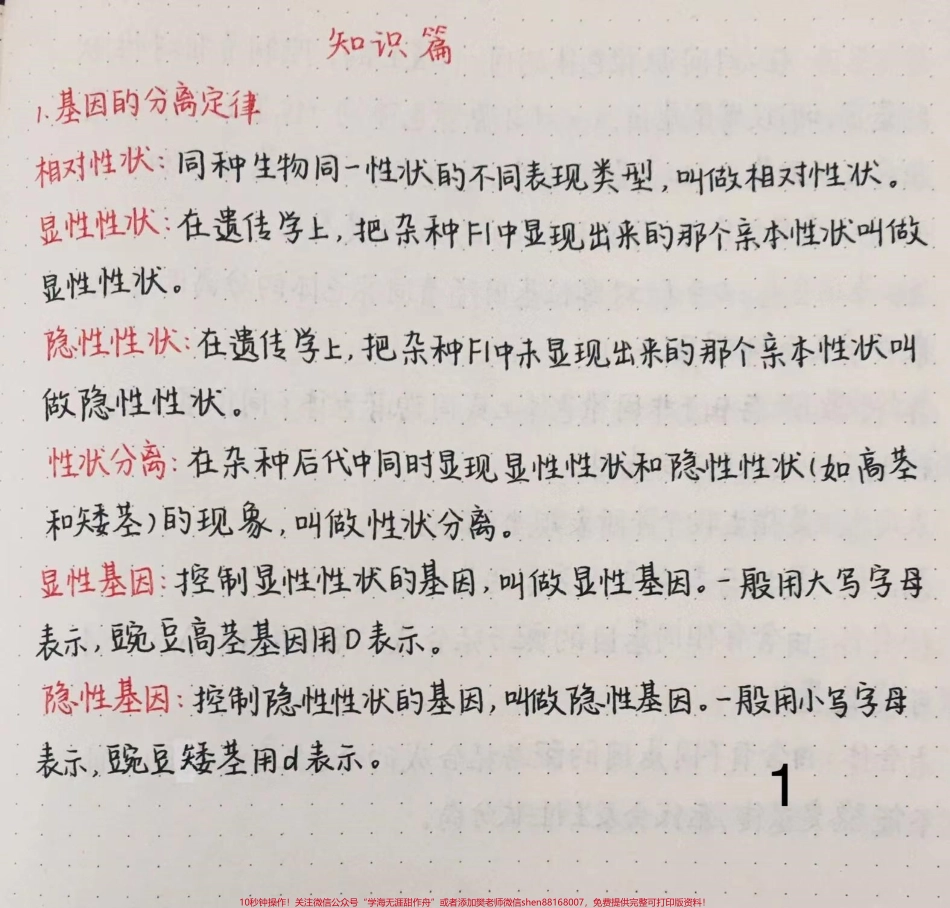 知识篇
1.基因的分离定律
相对性状:同种生物同一性状的不同表现类型,叫做相对性状。
显性性状:在遗传学上,把杂种F1中显现出来的那个亲本性状叫做
显性性状。
隐性性状:在遗传学上,把杂种F1中未显现出来的那个亲本性状叫
做隐性性状。
性状分离:在杂种后代中同时显现显性性状和隐性性状(如高茎
和矮茎)的现象,叫做性状分离。
显性基因:控制显性性状的基因,叫做显性基因。一般用大写字母
表示,豌豆高茎基因用D表示。
隐性基因:控制隐性性状的基因,叫做隐性基因。一般用小写字母
表示,豌豆矮茎用d表示。
1
10秒钟操作!关注微信公众号“学海无涯甜作舟”或者添加樊老师微信shen88168007,免费提供完整可打印版资料!